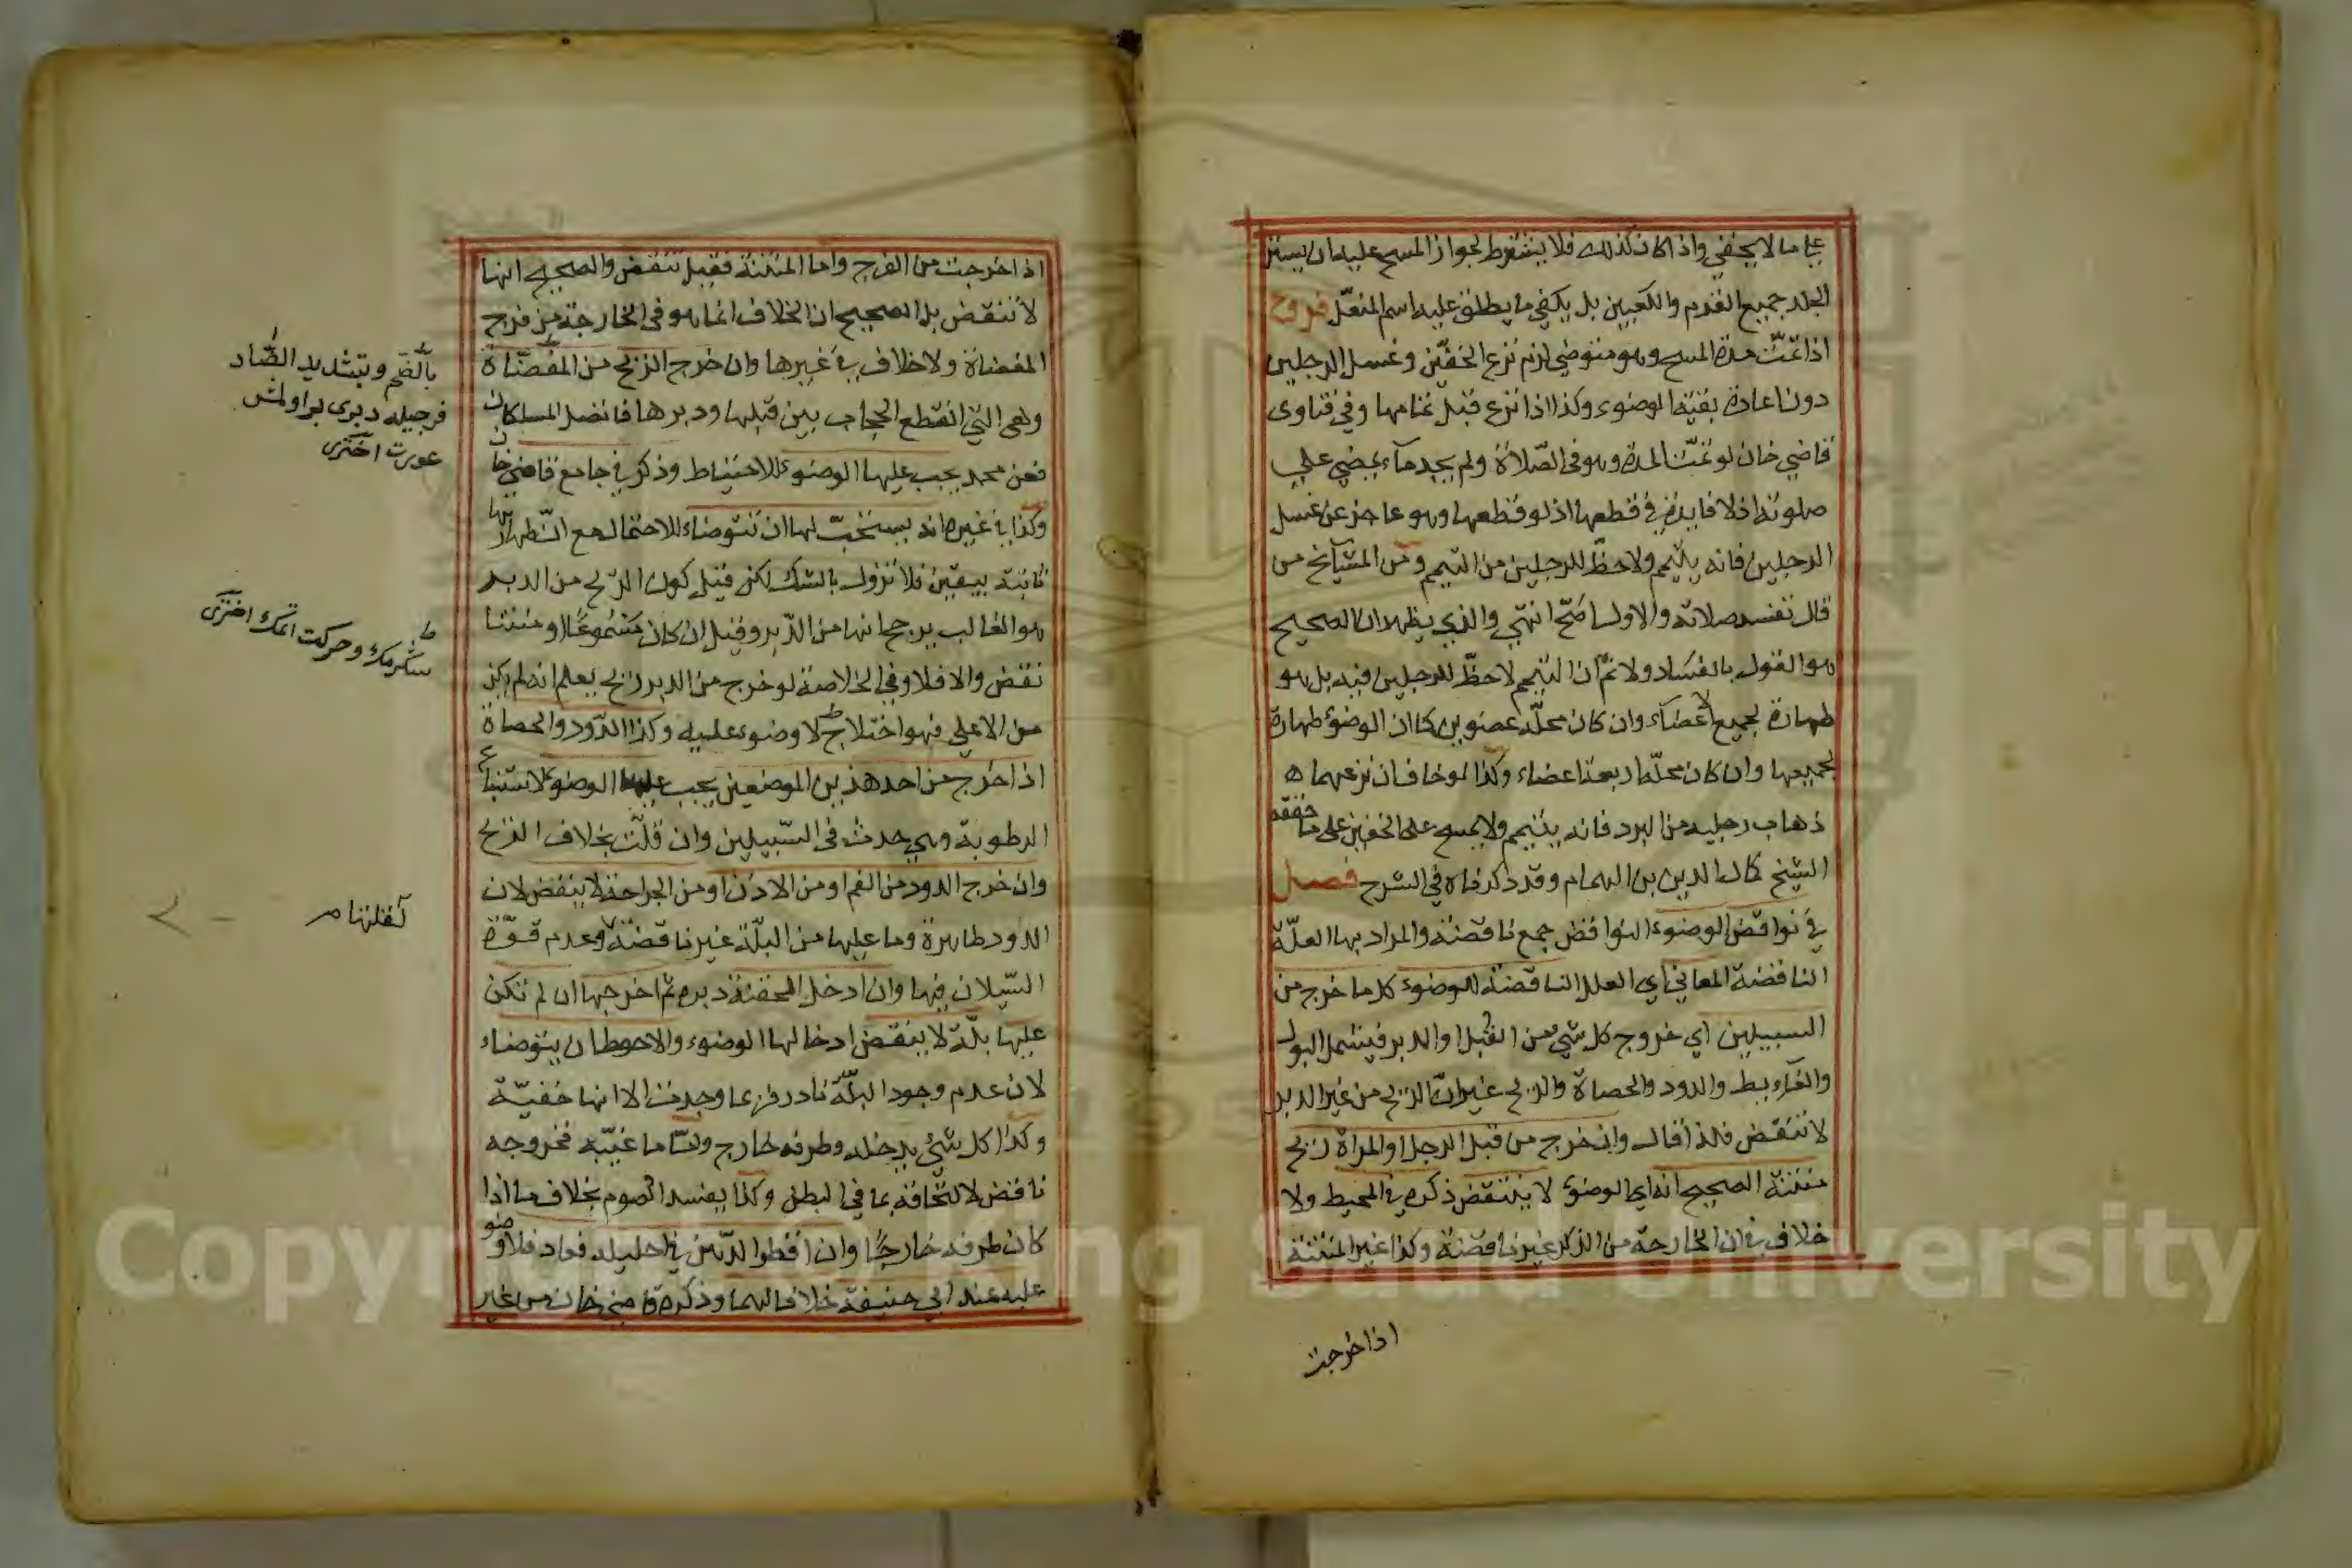 علي ما لا يخفي واذا كان كذلك فلا يشترط لجواز المسح عليه ان يستر
الجلد جميع القدم والكعبين بل يكفي ما يطلق عليه اسم المنعّل فروع
اذا تمّت مدة المسح وهو متوضي لزم نزع الخفّين وغسل الرجلين
دون اعادة بقيّة الوضوء وكذا اذا نزع قبل تمامها وفي فتاوى
قاضي خان لو تمّت المدة وهو في الصّلاة ولم يجد مآء يمضي علي
صلوته اذ لا فايدة في قطعها اذ لو قطعها وهو عاجز عن غسل
الرجلين فانه يتيمم ولا حظّ للرجلين من التيمم ومن المشآيخ من
قال تفسد صلاته والاول اصّح انتهي والذي يظهر ان الصحيح
هو القول بالفساد ولا نمّ ان التيمم لا حظّ للرجلين فيه بل هو
طهارة لجميع الاعضآء وان كان محلّه عضوين كما ان الوضوء طهارة
لجميعها وان كان محلّه اربعة اعضاء وكذا لو خاف ان نزعهما ه
ذهاب رجليه من البرد فانه يتيمم ولا يمسح على الخفين على ما حققه
الشيخ كمال الدين بن الهمام وقد ذكرناه في الشرح فصل
في نواقض الوضوء النواقض جمع ناقضة والمراد بها العلّة
الناقضة المعاني اي العلل الناقضة للوضوء كل ما خرج من
السبيلين اي خروج كل شيء من القبل او الدبر فيشمل البول
والغآيط والدود والحصاة والريح غير انّ الريح من غير الدبر
لا تنقض فلذا قال وان خرج من قبل الرجل او المراة ريح
منتنة الصحيح انه اي الوضوء لا ينتقض ذكره في المحيط ولا
خلاف في ان الخارجة من الذكر غير ناقضة وكذا غير المنتنة
اذا خرجت
اذا خرجت من الفرج واما المنتنة فقيل تنقض والصحيح انها
لا تنقض بل الصحيح ان الخلاف انما هو في الخارجة من فرج
المفضاة ولا خلاف في غيرها وان خرج الريح من المفضّاة
وهي التي انقطع الحجاب بين قبلها ودبرها فاتصل المسلكان
فعن محمد يجب عليها الوضوء للاحتياط وذكر في جامع قاضي خان
وكذا في غيره انه يستحبّ لها ان تتوضاء للاحتمال مع انّ طهارتها
ثابتة بيقين فلا تزول بالشك لكن قيل كون الريح من الدبر
هو الغالب يرجح انها من الدّبر وقيل ان كان مسموعًا او منتنا
نقض والا فلا وفي الخلاصة لو خرج من الدبر ريح يعلم انه لم يكن
من الاعلي فهو اختلاج لا وضوء عليه وكذا الدّود والحصاة
اذا خرج من احد هذين الموضعين يجب عليه الوضوء لاستتباع
الرطوبة وهي حدث في السّبيلين وان قلّت بخلاف الريح
وان خرج الدود من الفم او من الاذن او من الجراحة لا ينقض لان
الدود طاهرة وما عليها من البلّة غير ناقضة وعدم قوّة
السّيلان فيها وان ادخل المحقنة دبره ثم اخرجها ان لم تكن
عليها بلّة لا ينقض ادخالها الوضوء والاحوط ان يتوضاء
لان عدم وجود البلّة نادر فربما وجدت الا انها خفيّة
وكذا كل شئ يدخله وطرفه خارج وامّا ما غيّبه فخروجه
ناقض لالتحاقه بما في البطن وكذا يفسد الصوم بخلاف ما اذا
كان طرفه خارجًا وان اقطر الدّهن في احليله فعاد فلا وضوء
عليه عند ابي حنيفة خلافا لهما وذكره قاضي خان من غير
بالضّم وتشديد الضّاد
فرجيله دبرى بر اولمش
عورت اختري
سكرمك وحركت اتمك اختري
Copyright © King Saud University